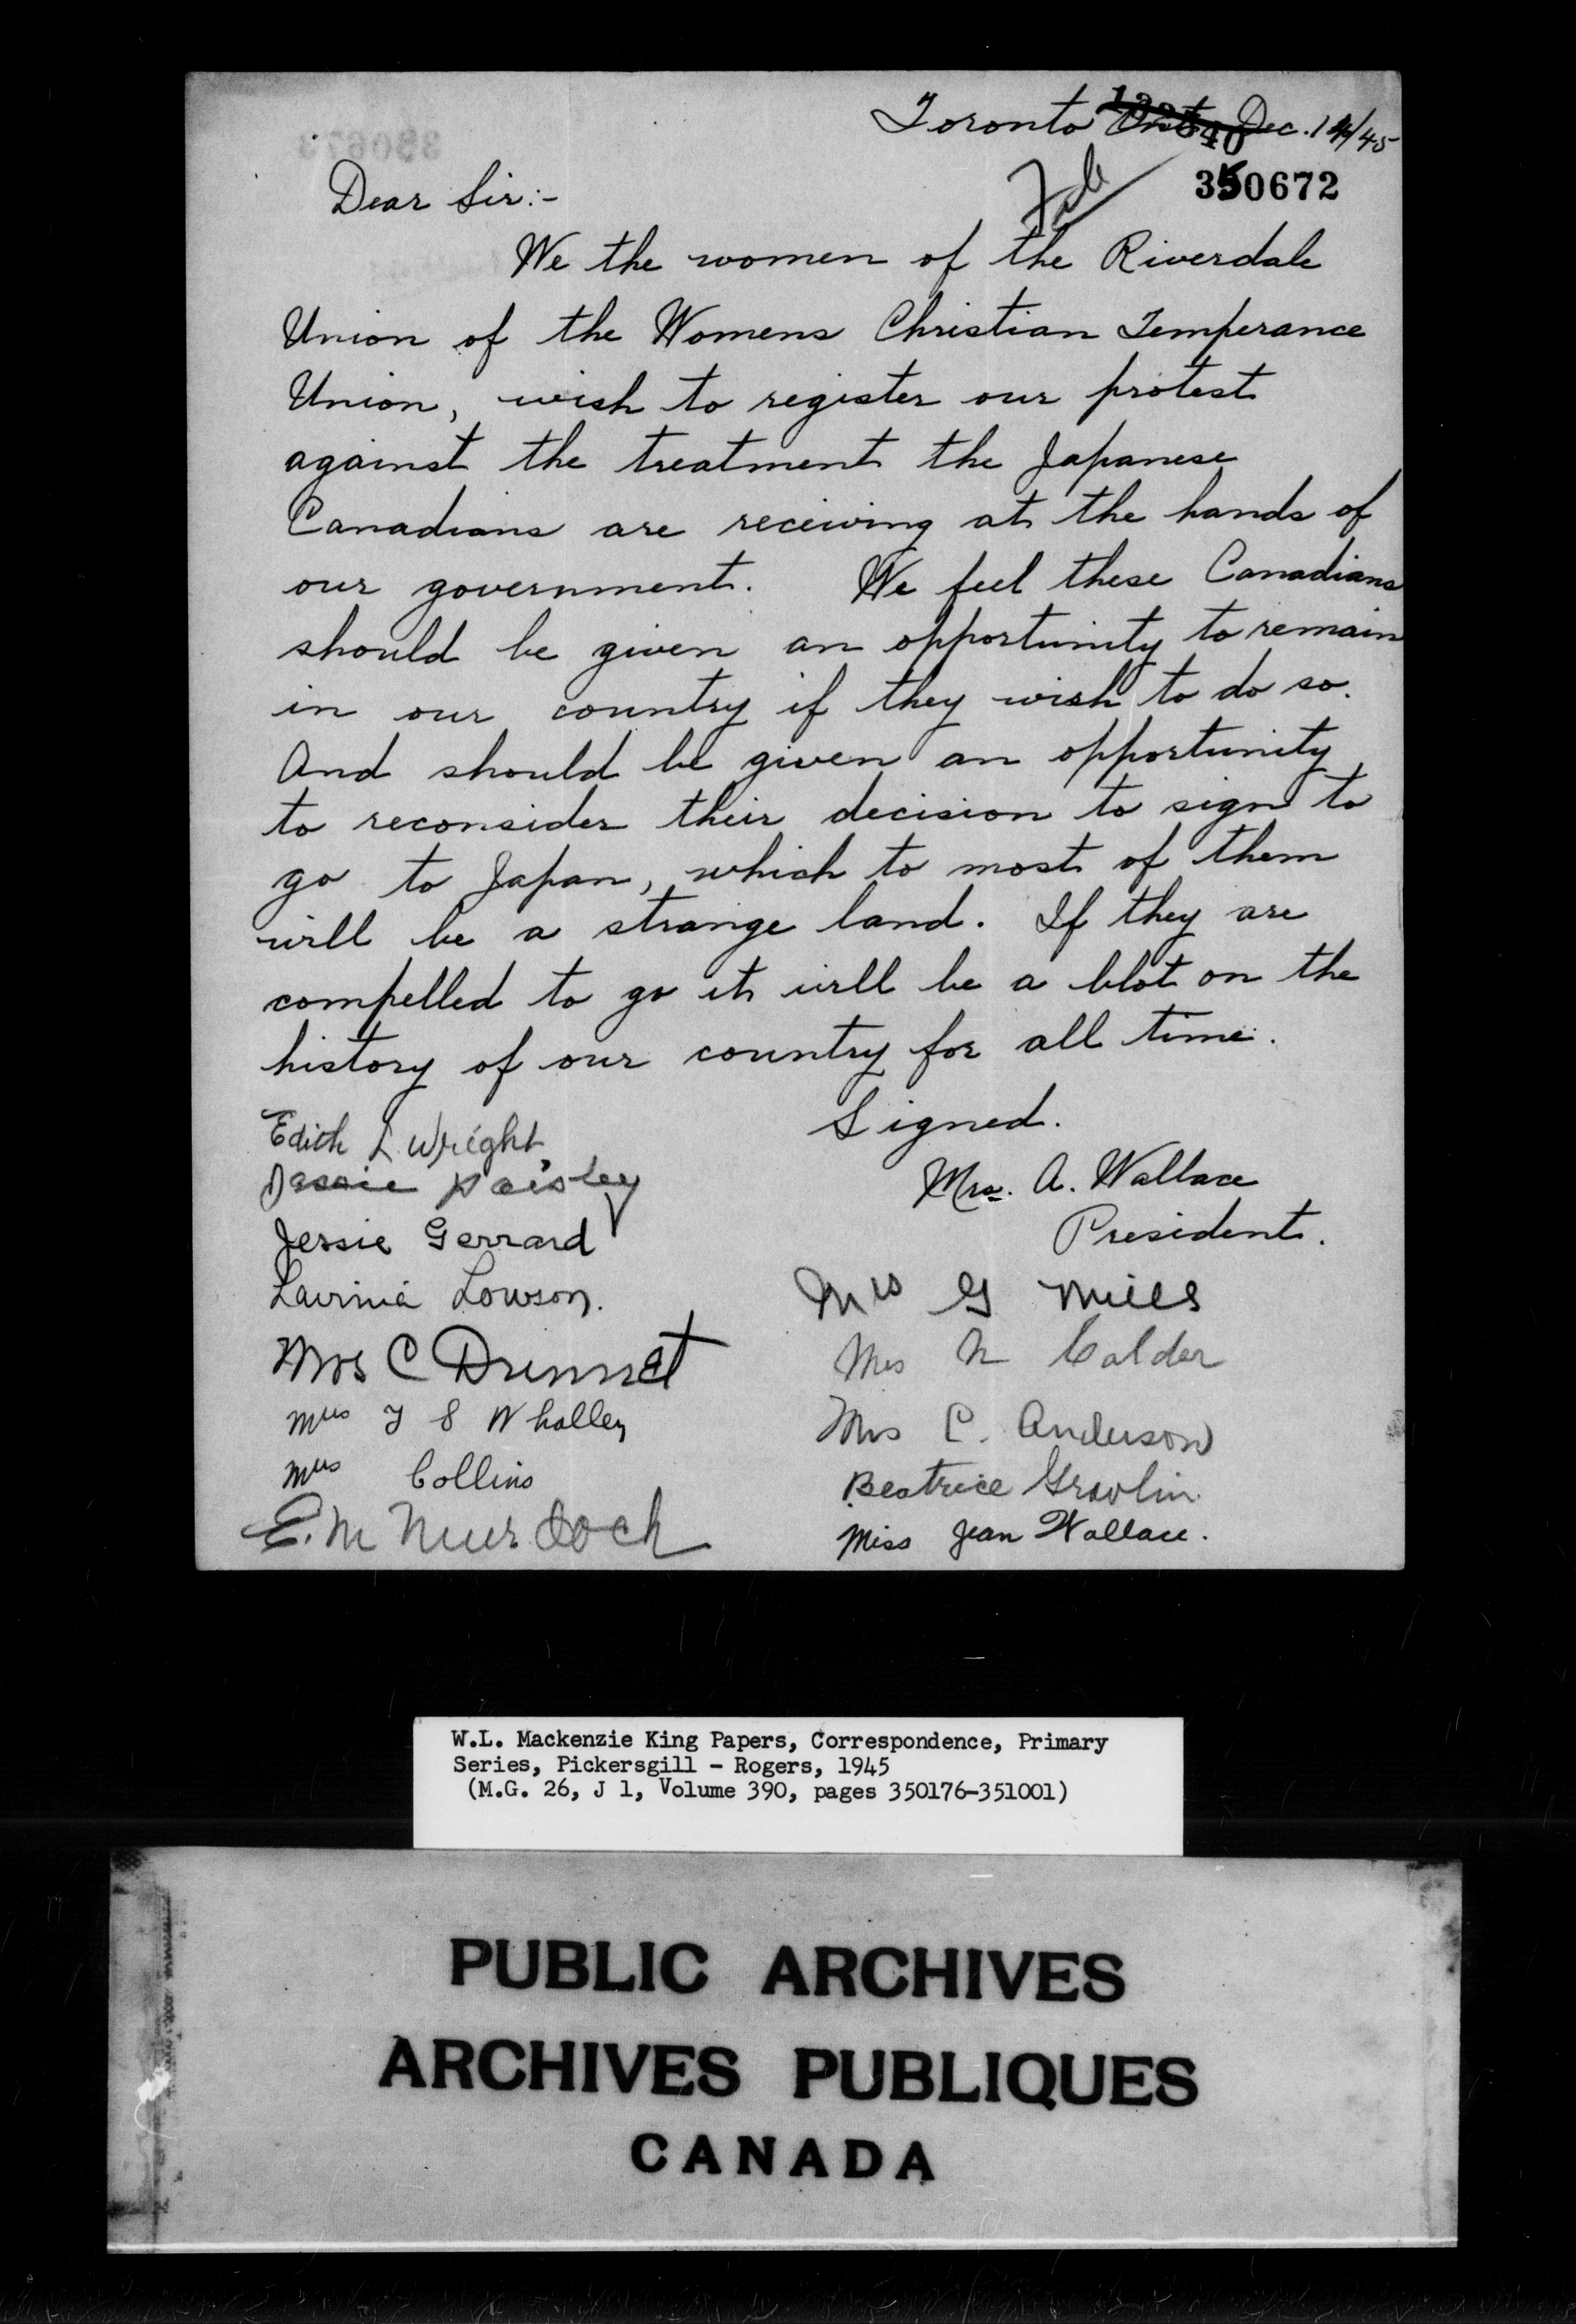 Toronto Ont. Dec. 14/45
350672
Dear Sir:-
We the women of the Riverdale
Union of the Womens Christian Temperance
Union, wish to register our protest
against the treatment the Japanese
Canadians are receiving at the hands of
our government. We feel these Canadians
should be given an opportunity to remain
in our country if they wish to do so.
And should be given an opportunity
to reconsider their decision to sign to
go to Japan, which to most of them
will be a strange land. If they are
compelled to go it will be a blot on the
history of our country for all time.
Signed.
Mrs. A. Wallace
President.
Mrs G Mills
Mrs N Calder
Mrs C. Anderson
Beatrice
Miss Jean Wallace.
Edith L Wright
Jessie Paisley
Jessie Gerrard
Lavinia Lowson.
Mrs C Drennet
Mrs T S Whalley
Mrs Collins
E. M Murdoch
W.L. Mackenzie King Papers, Correspondence, Primary
Series, Pickersgill - Rogers, 1945
(M.G. 26, J 1, Volume 390, pages 350176-351001)
PUBLIC ARCHIVES
ARCHIVES PUBLIQUES
CANADA